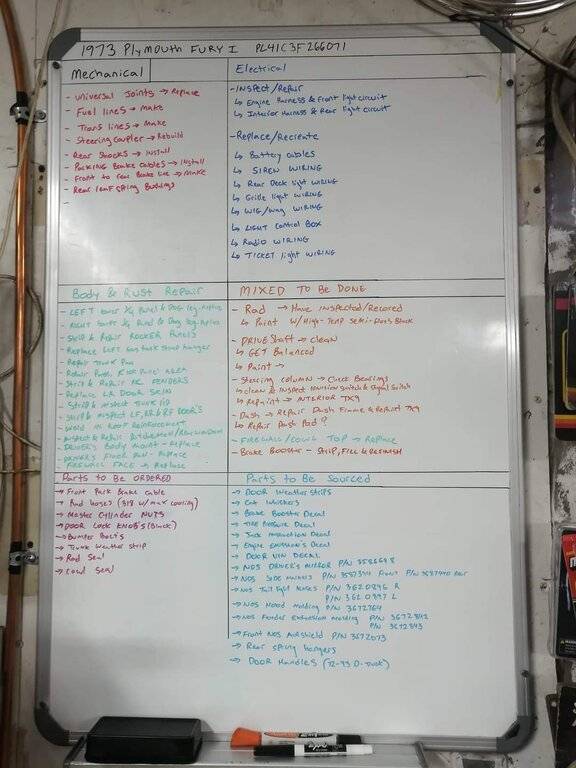 1973 Plymouth Fury I PL41C3F266071
Mechanical
- Universal Joints → Replace
- Fuel lines → Make
- Trans lines → Make
- Steering coupler → Rebuild
- Rear Shocks → Install
- Parking Brake Cables → Install
- Front to rear Brake line → Make
- Rear leaf spring Bushings
-
Electrical
- Inspect/Repair
↳ Engine Harness & Front light circuit
↳ Interior Harness & Rear light circuit
- Replace/Recreate
↳ Battery cables
↳ Siren Wiring
↳ Rear Deck light Wiring
↳ Grille light Wiring
↳ Wig/Wag Wiring
↳ Light Control Box
↳ Radio Wiring
↳ Ticket light Wiring
Body & Rust Repair
- Left lower 1/4 Panel & Dog leg
- Right lower 1/4 Panel & Dog leg
- Strip & Repair Rocker Panels
- Replace Left Gas tank strap hanger
- Repair Trunk Pan
- Repair Area
- Strip & Repair Fenders
- Replace LR Door Skin
- Strip & Inspect Trunk lid
- Strip & Inspect LF, RR & RF Doors
- Weld in Roof Reinforcement
- Inspect & Repair
- Driver's Body Mount - Replace
- Driver's Floor Pan - Replace
- Firewall Face → Replace
Mixed To Be Done
- Rad → Have Inspected/Recored
↳ Paint W/High-Temp Semi-Gloss Black
- Driveshaft → Clean
↳ Get Balanced
↳ Paint →
- Steering Column → Check Bearings
↳ Clean & Inspect Switch & Signal Switch
↳ Repaint → Interior TX9
- Dash → Repair Dash Frame & Repaint TX9
↳ Repair Dash Pad?
- Firewall/Cowl Top → Replace
- Brake Booster - Strip, Fill & Refinish
Parts to be Ordered
→ Front Park Brake Cable
→ Rad hoses (318 w/max cooling)
→ Master Cylinder Nuts
→ Door Lock Knobs (Black)
→ Bumper Bolts
→ Trunk Weather Strip
→ Rad Seal
→ Cowl Seal
Parts to be Sourced
→ Door Weatherstrips
→ Cat Whiskers
→ Brake Booster Decal
→ Tire Pressure Decal
→ Jack Instruction Decal
→ Engine Emissions Decal
→ Door VIN Decal
→ NOS Driver's Mirror P/N
→ NOS Side Markers P/N Front P/N Rear
→ NOS Tail light P/N 3620896 R
P/N 3620897 L
→ NOS Hood Molding P/N 3672764
→ NOS Fender Extension Molding P/N 3672842
P/N 3672843
→ Front NOS P/N 3672073
→ Rear Spring hangers
→ Door Handles (72-93 D-Truck)
EXPO